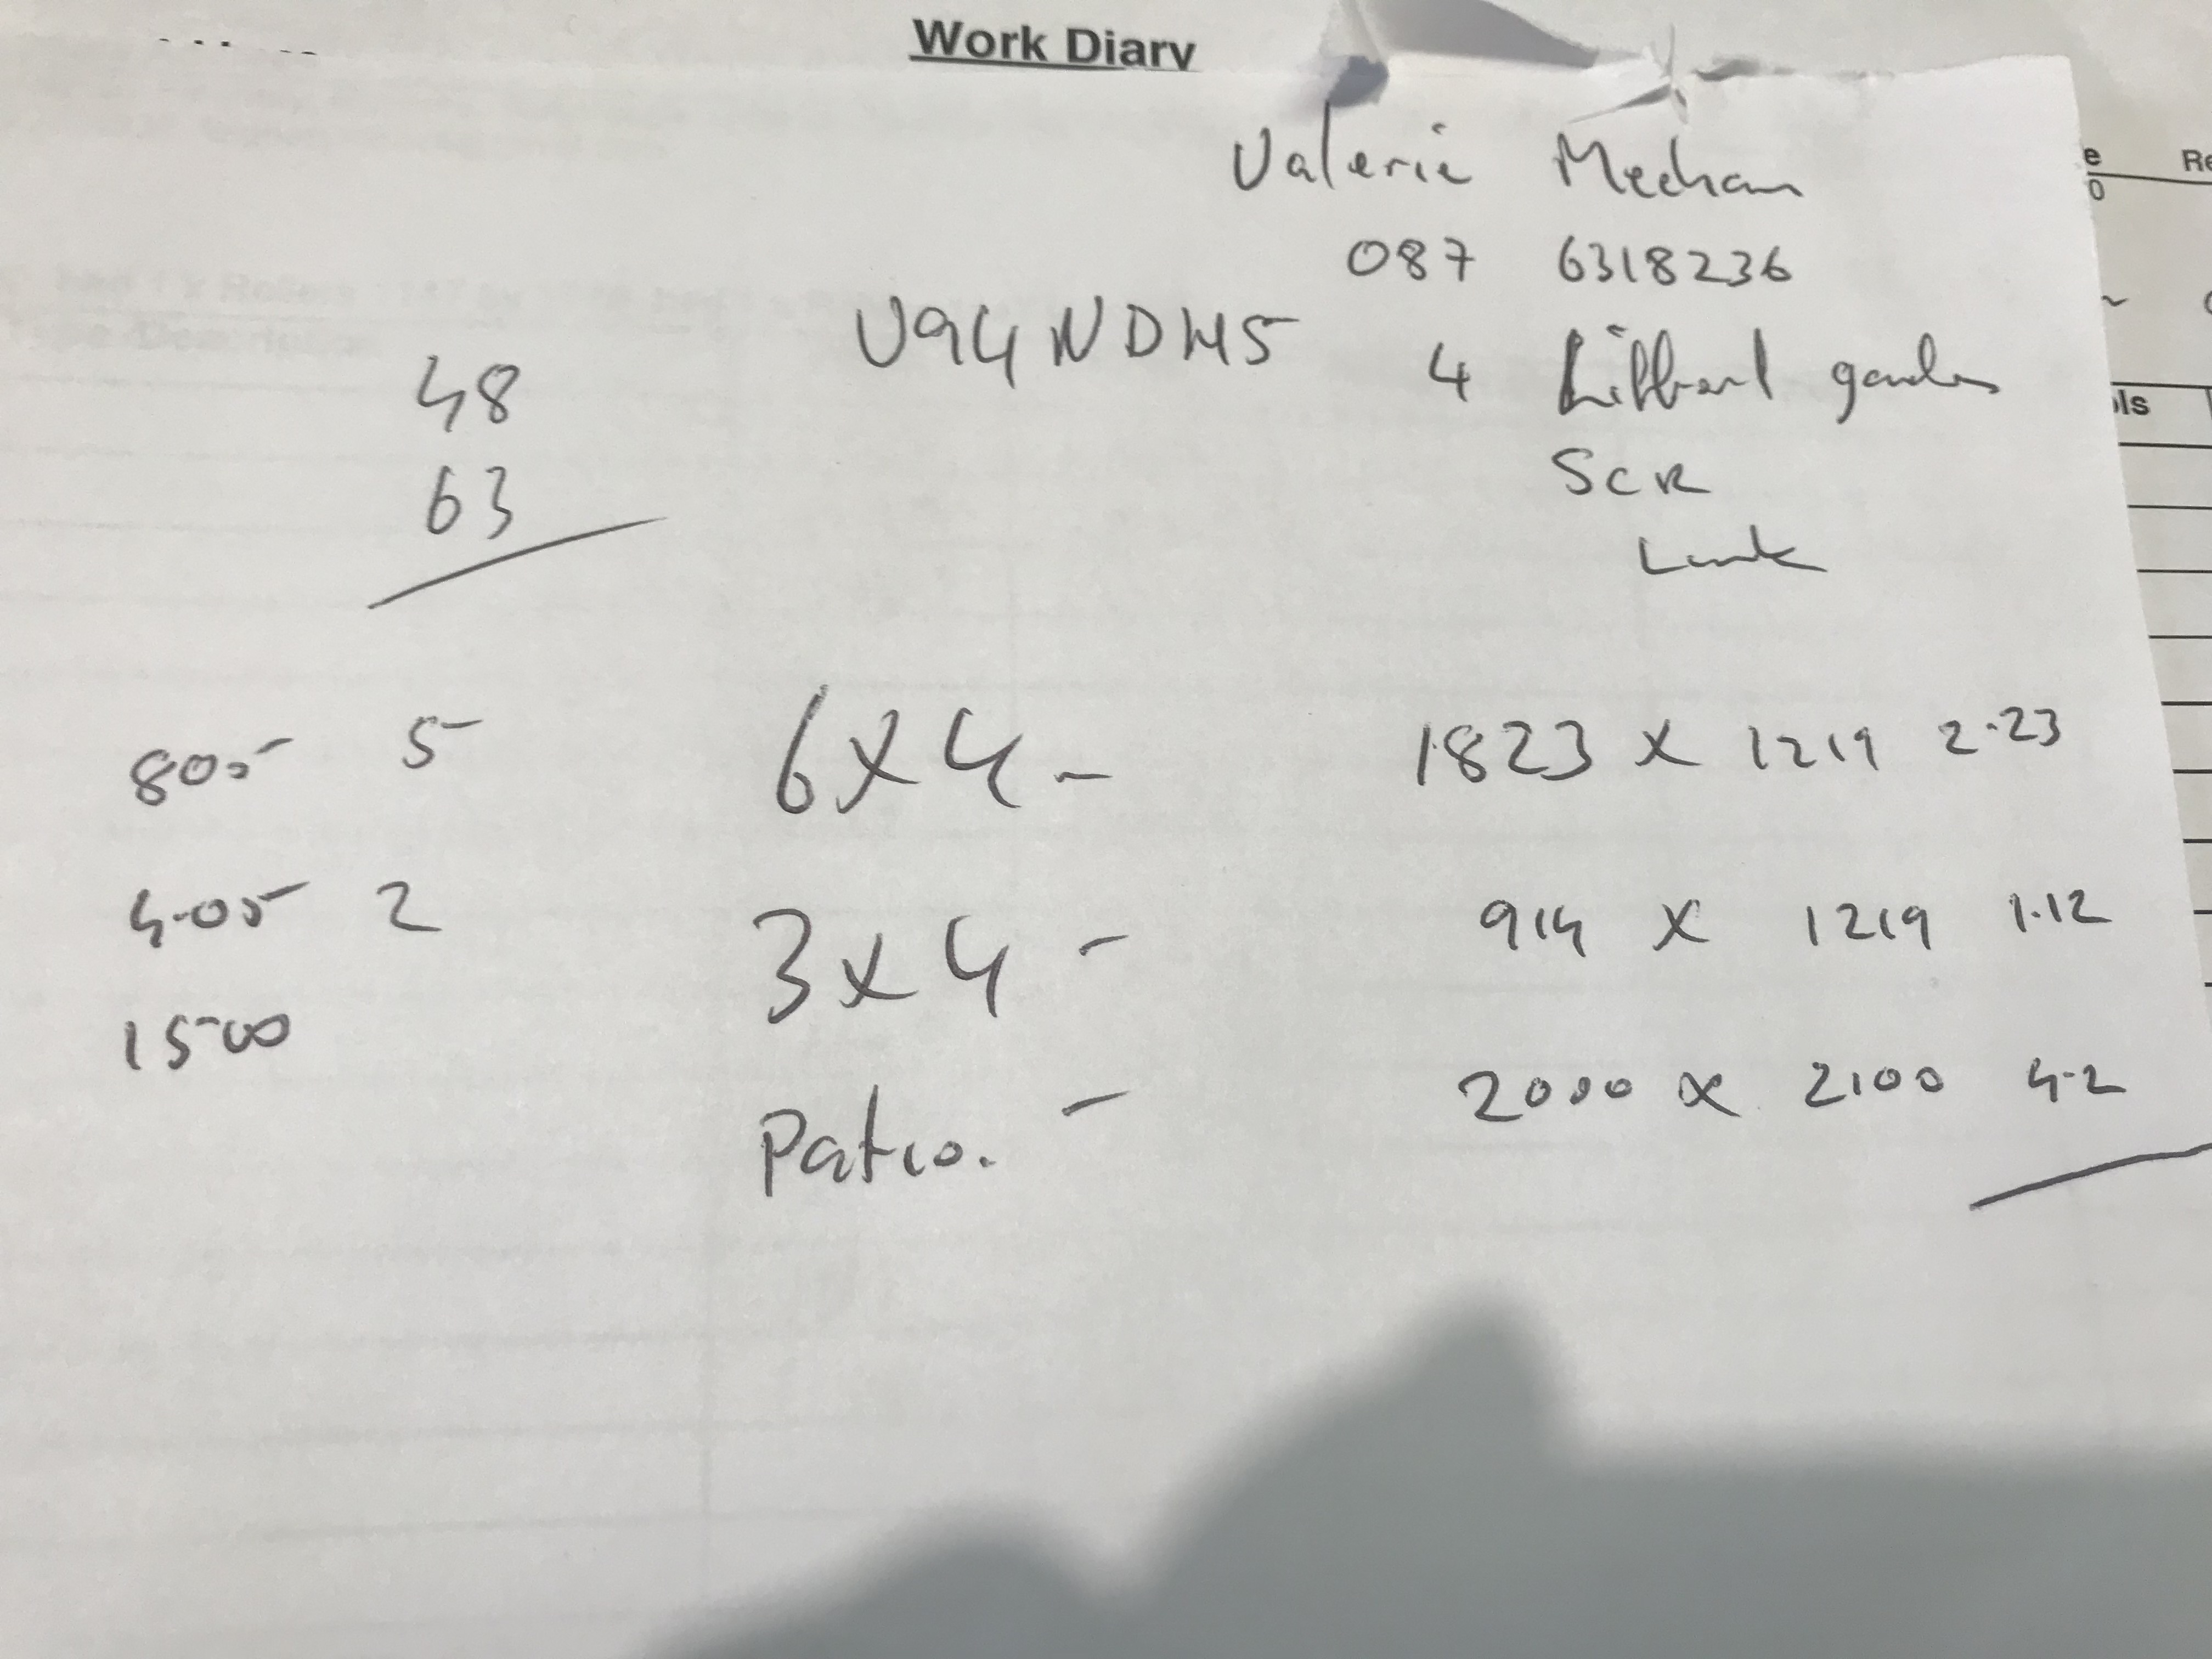 Work Diary
Valerie Meehan
087 6318236
V94NDH5
4 gardens
SCR
48
63
805 5 6x4 - 1823 x 1219 2.23
4.05 2 3x4 - 914 x 1219 1.12
1500 Patio. - 2000 x 2100 4.2
e Re
0
ols